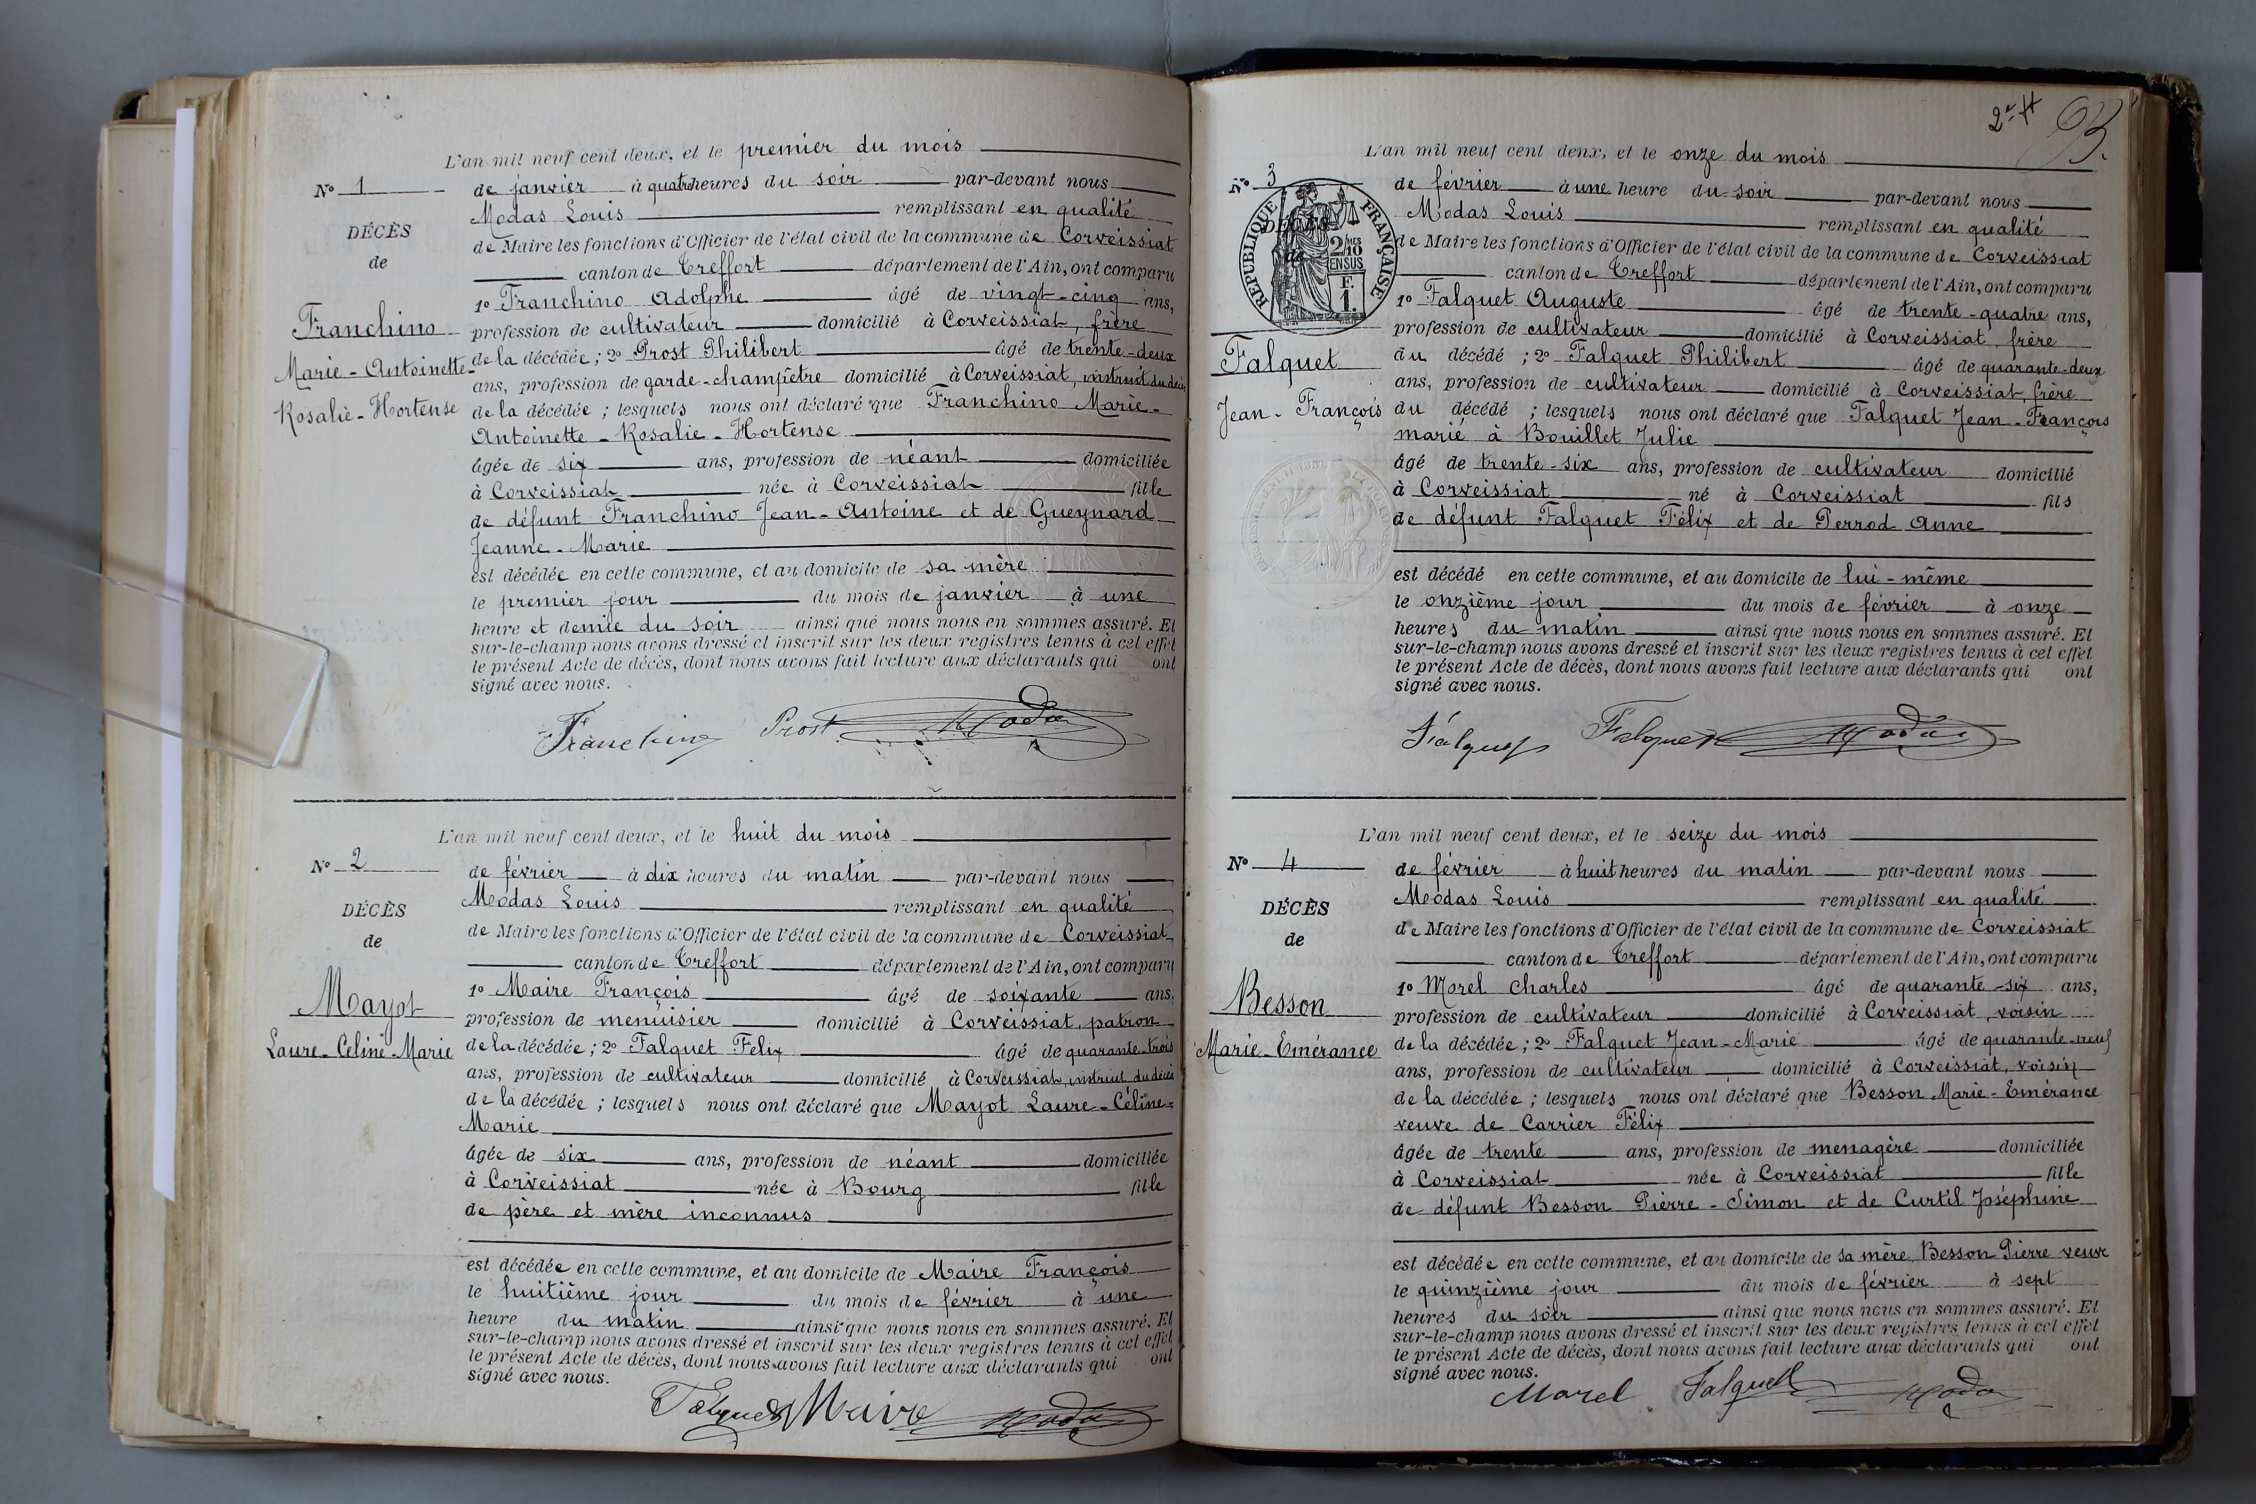 L'an mil neuf cent deux, et le premier du mois
No 1
de janvier à quatre heures du soir par-devant nous
Modas Louis remplissant en qualité
DÉCÈS
de Maire les fonctions d'Officier de l'état civil de la commune de Corveissiat
de
canton de Treffort département de l'Ain, ont comparu
1o Franchino Adolphe âgé de vingt-cinq ans,
Franchino
profession de cultivateur domicilié à Corveissiat, frère
Marie-Antoinette
de la décédée; 2o Prost Philibert âgé de trente-deux
ans, profession de garde-champêtre domicilié à Corveissiat, instruit du décès
Rosalie-Hortense
de la décédée; lesquels nous ont déclaré que Franchino Marie-
Antoinette-Rosalie-Hortense
âgée de six ans, profession de néant domiciliée
à Corveissiat née à Corveissiat fille
de défunt Franchino Jean-Antoine et de Gueynard
Jeanne-Marie
est décédée en cette commune, et au domicile de sa mère
le premier jour du mois de janvier à une
heure et demie du soir ainsi que nous nous en sommes assuré. Et
sur-le-champ nous avons dressé et inscrit sur les deux registres tenus à cet effet
le présent Acte de décès, dont nous avons fait lecture aux déclarants qui ont
signé avec nous.
Franchino Prost Modas
L'an mil neuf cent deux, et le huit du mois
No 2
de février à dix heures du matin par-devant nous
Modas Louis remplissant en qualité
DÉCÈS
de Maire les fonctions d'Officier de l'état civil de la commune de Corveissiat
de
canton de Treffort département de l'Ain, ont comparu
1o Maire François âgé de soixante ans,
Mayot
profession de menuisier domicilié à Corveissiat, patron
Laure-Céline-Marie
de la décédée; 2o Falquet Félix âgé de quarante-trois
ans, profession de cultivateur domicilié à Corveissiat, instruit du décès
de la décédée; lesquels nous ont déclaré que Mayot Laure-Céline-
Marie
âgée de six ans, profession de néant domiciliée
à Corveissiat née à Bourg fille
de père et mère inconnus
est décédée en cette commune, et au domicile de Maire François
le huitième jour du mois de février à une
heure du matin ainsi que nous nous en sommes assuré. Et
sur-le-champ nous avons dressé et inscrit sur les deux registres tenus à cet effet
le présent Acte de décès, dont nous avons fait lecture aux déclarants qui ont
signé avec nous.
Falquet Maire Modas
93.
L'an mil neuf cent deux, et le onze du mois
No 3
de février à une heure du soir par-devant nous
Modas Louis remplissant en qualité
DÉCÈS
RÉPUBLIQUE FRANÇAISE
2/10 MES
EN SUS
F.
1.
de Maire les fonctions d'Officier de l'état civil de la commune de Corveissiat
de
canton de Treffort département de l'Ain, ont comparu
1o Falquet Auguste âgé de trente-quatre ans,
profession de cultivateur domicilié à Corveissiat, frère
Falquet
du décédé; 2o Falquet Philibert âgé de quarante-deux
ans, profession de cultivateur domicilié à Corveissiat, frère
Jean-François
du décédé; lesquels nous ont déclaré que Falquet Jean-François
marié à Bouillet Julie
âgé de trente-six ans, profession de cultivateur domicilié
à Corveissiat né à Corveissiat fils
de défunt Falquet Félix et de Perrod Anne
est décédé en cette commune, et au domicile de lui-même
le onzième jour du mois de février à onze
heures du matin ainsi que nous nous en sommes assuré. Et
sur-le-champ nous avons dressé et inscrit sur les deux registres tenus à cet effet
le présent Acte de décès, dont nous avons fait lecture aux déclarants qui ont
signé avec nous.
Falquet Falquet Modas
L'an mil neuf cent deux, et le seize du mois
No 4
de février à huit heures du matin par-devant nous
Modas Louis remplissant en qualité
DÉCÈS
de Maire les fonctions d'Officier de l'état civil de la commune de Corveissiat
de
canton de Treffort département de l'Ain, ont comparu
1o Morel Charles âgé de quarante-six ans,
Besson
profession de cultivateur domicilié à Corveissiat, voisin
Marie-Emérance
de la décédée; 2o Falquet Jean-Marie âgé de quarante-neuf
ans, profession de cultivateur domicilié à Corveissiat, voisin
de la décédée; lesquels nous ont déclaré que Besson Marie-Emérance
veuve de Carrier Félix
âgée de trente ans, profession de menagère domiciliée
à Corveissiat née à Corveissiat fille
de défunt Besson Pierre-Simon et de Curtil Joséphine
est décédée en cette commune, et au domicile de sa mère, Besson Pierre veuve
le quinzième jour du mois de février à sept
heures du soir ainsi que nous nous en sommes assuré. Et
sur-le-champ nous avons dressé et inscrit sur les deux registres tenus à cet effet
le présent Acte de décès, dont nous avons fait lecture aux déclarants qui ont
signé avec nous.
Morel Falquet Modas